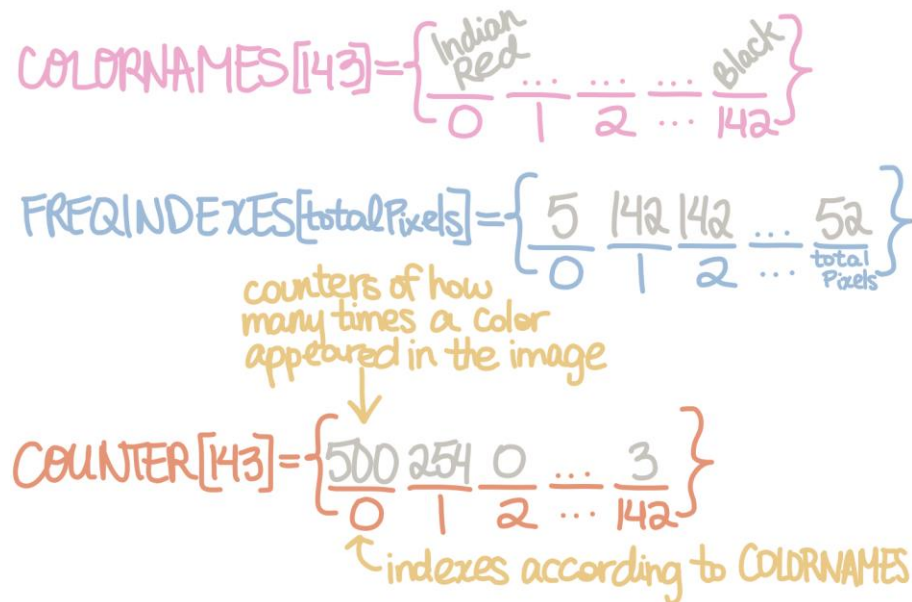 COLORNAMES[143]={Indian Red ... ... ... Black}
0 1 2 ... 142
FREQINDEXES[totalPixels]={5 142 142 ... 52}
0 1 2 ... total Pixels
counters of how
many times a color
appeared in the image
COUNTER[143]={500 254 0 ... 3}
0 1 2 ... 142
indexes according to COLORNAMES